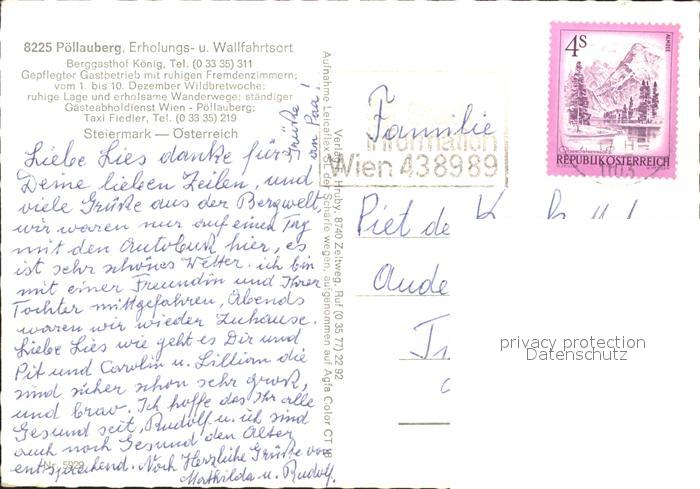 8225 Pöllauberg, Erholungs- u. Wallfahrtsort
Berggasthof König, Tel. (0 33 35) 311
Gepflegter Gastbetrieb mit ruhigen Fremdenzimmern;
vom 1. bis 10. Dezember Wildbretwoche;
ruhige Lage und erholsame Wanderwege; ständiger
Gästeabholdienst Wien - Pöllauberg;
Taxi Fiedler, Tel. (0 33 35) 219
Steiermark — Österreich
Liebe Lies danke für
Deine lieben Zeilen, und
viele Grüße aus der Bergwelt,
wir waren nur auf einen Tag
mit den Autobus hier, es
ist sehr schönes Wetter. ich bin
mit einer Freundin und Ihrer
Tochter mittgefahren, Abends
waren wir wieder Zuhause.
Liebe Lies wie geht es Dir und
Pit und Carolin u. Lillian die
sind sicher schon sehr groß,
und brav. Ich hoffe das Ihr alle
Gesund seit, Rudolf u. ich sind
auch noch Gesund den Alter
entsprechend. Noch Herzliche Grüße von
Mathilda u. Rudolf.
Grüße
an Paa!
Nr. 5929
Verlag A. Hruby, 8740 Zeltweg, Ruf (0 35 77) 22 92
Aufnahme Leicaflex SL, der Schärfe wegen, aufgenommen auf Agfa Color CT 18
Information
Wien 438989
4S
ALMSEE
REPUBLIK ÖSTERREICH
1103
Familie
Piet de
privacy protection
Datenschutz